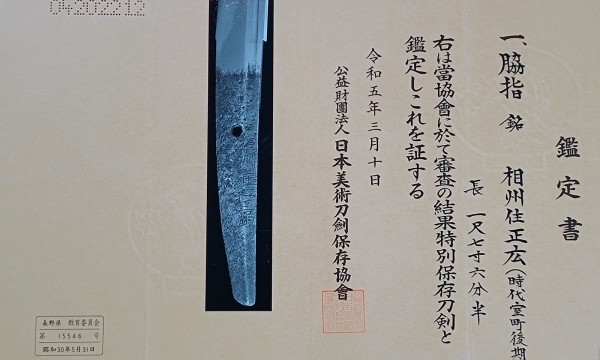 鑑定書
一、脇指 銘 相州住正広(時代室町後期
長 一尺七寸六分半
右は當協會に於て審査の結果特別保存刀剣と
鑑定しこれを証する
令和五年三月十日
公益財團法人日本美術刀劍保存協會
04202212
長野県 教育委員会
第 15546 号
昭和30年5月31日